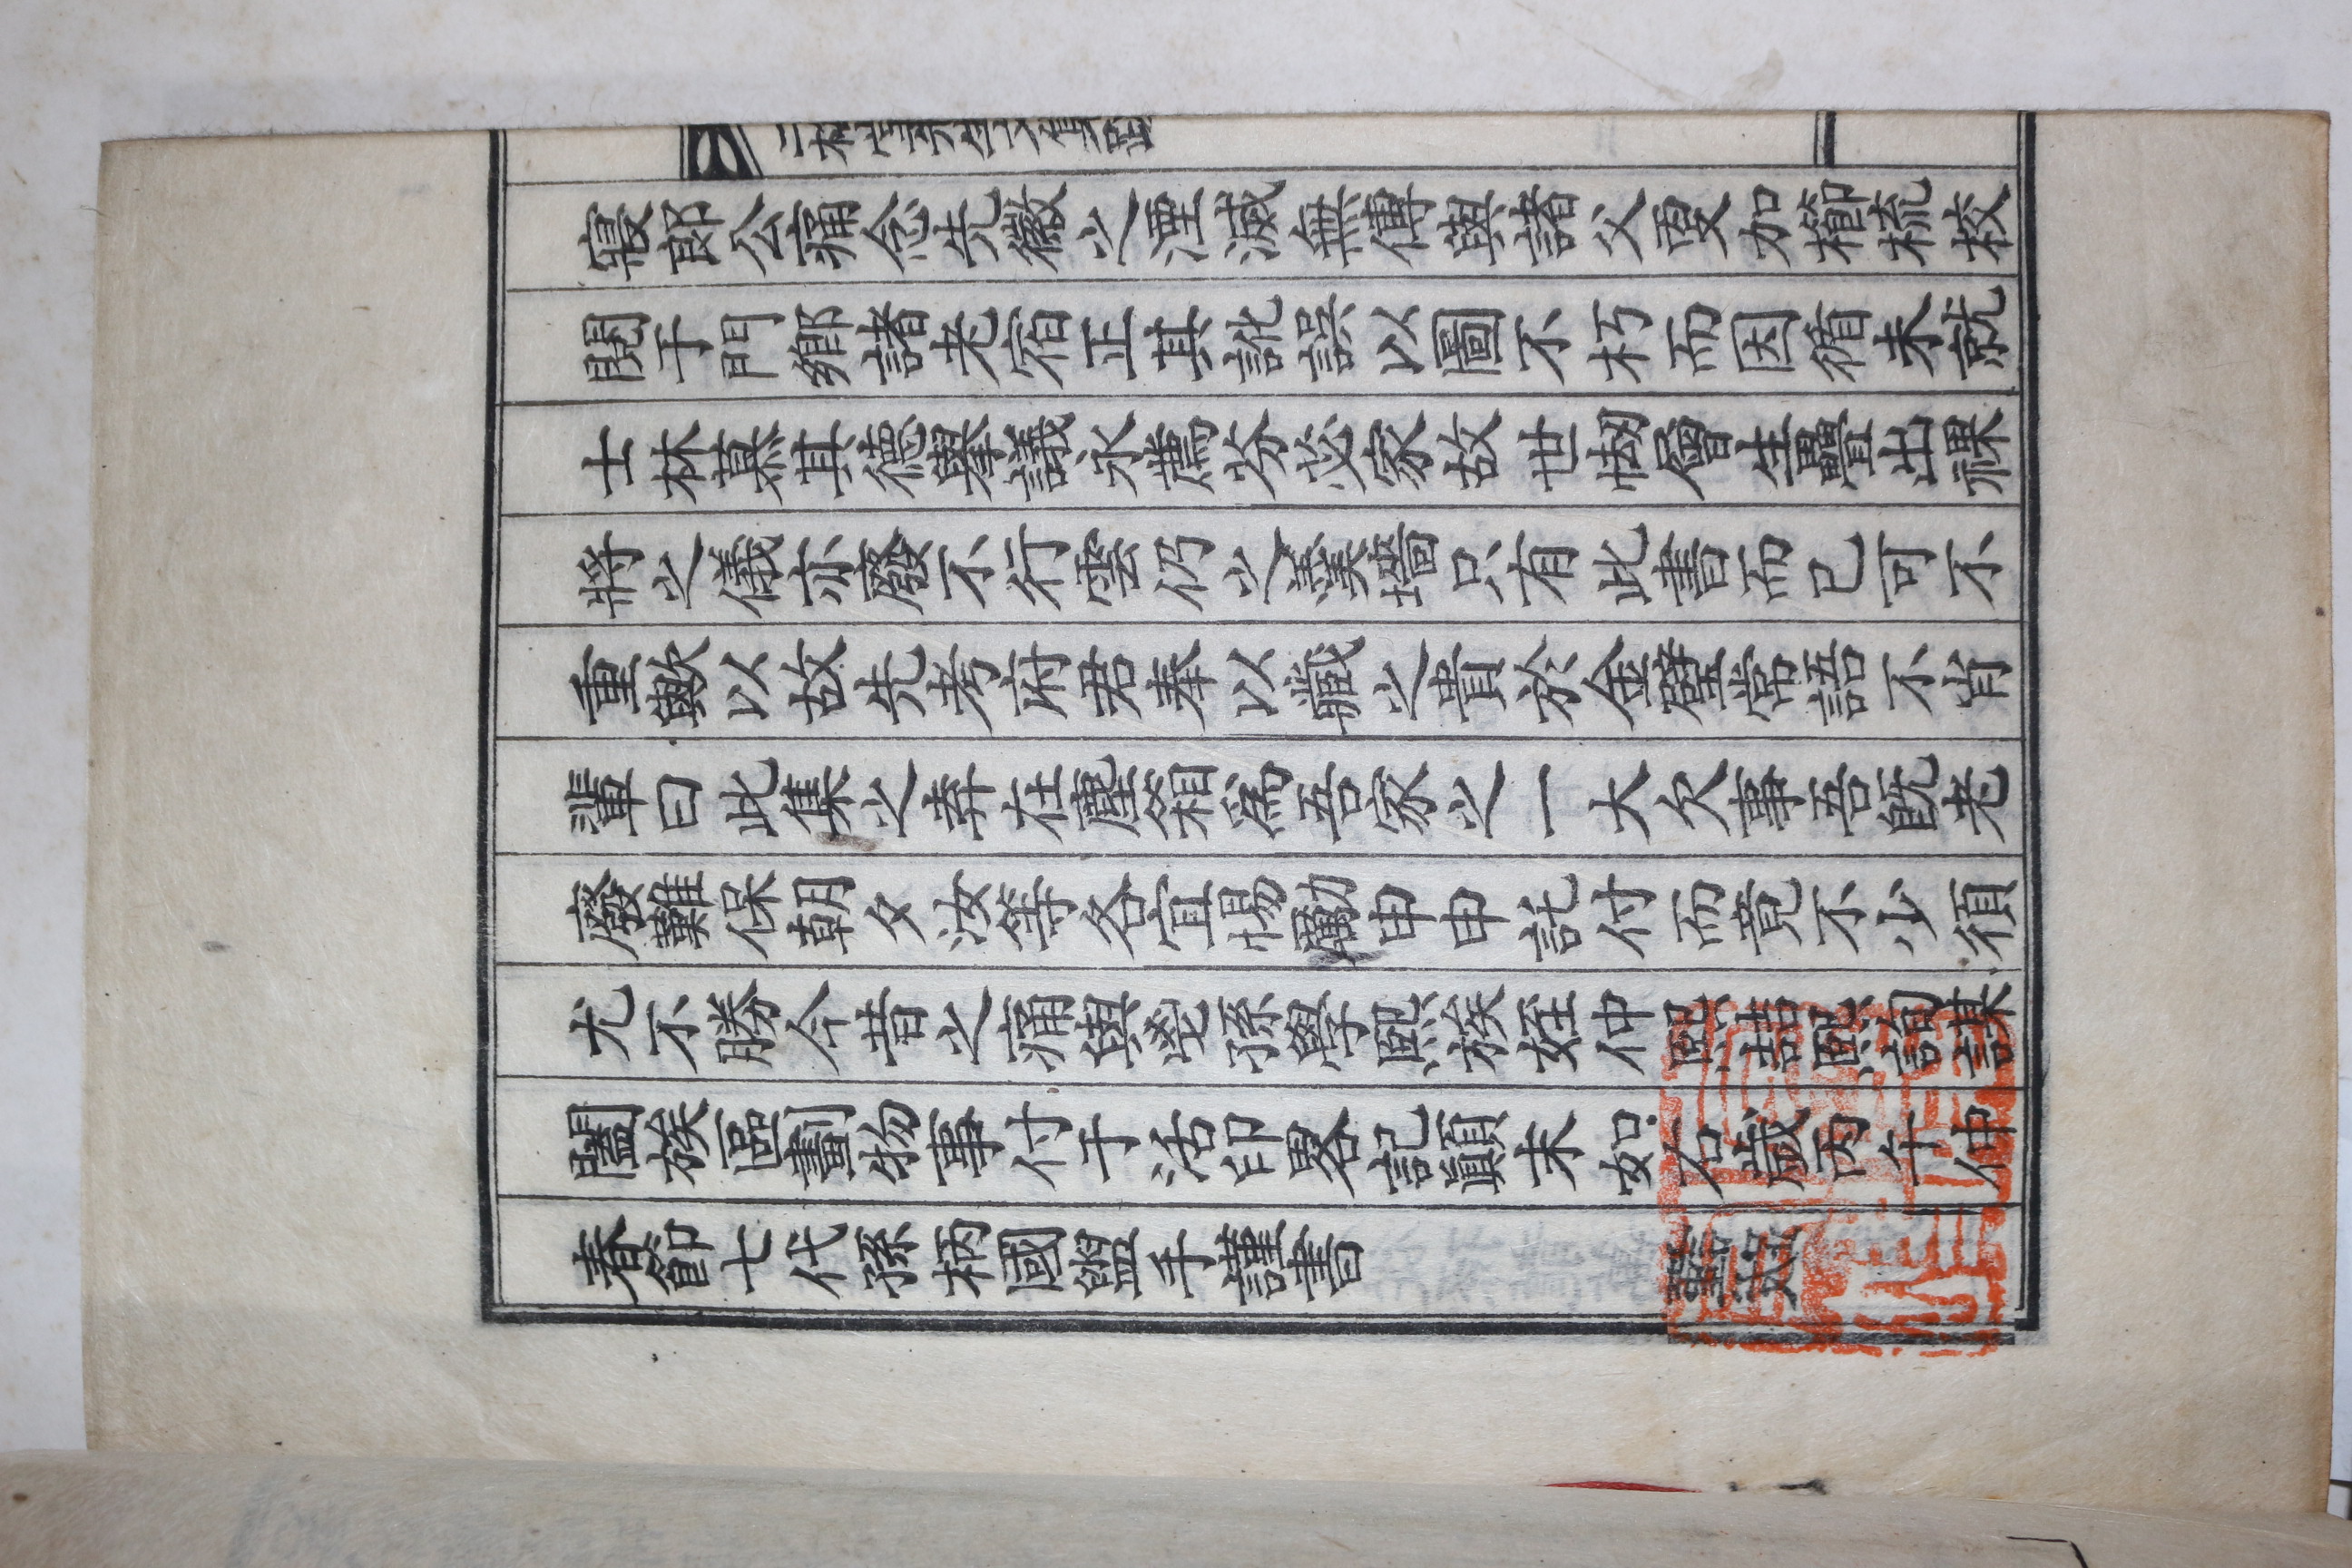 寢郎公痛念先徽之湮滅無傳與諸父更加櫛梳校
閱于門鄉諸老宿正其訛誤以圖不朽而因循未就
士林慕其德擧議永薦芬苾家故世刼層生疊出祼
將之儀亦廢不行雲仍之羹墻只有此書而已可不
重歟以故先考府君奉以藏之寶於金璧常語不肖
輩曰此集之弆在塵箱爲吾家之一大欠事吾旣老
廢難保朝夕汝等各宜惕勵申申託付而竟不少須
尤不勝今昔之痛與從孫學熙族姪仲熙喆熙詢謀
闔族區劃物事付于活印畧記顚末如右歲丙午仲
春節七代孫柄國盥手謹書